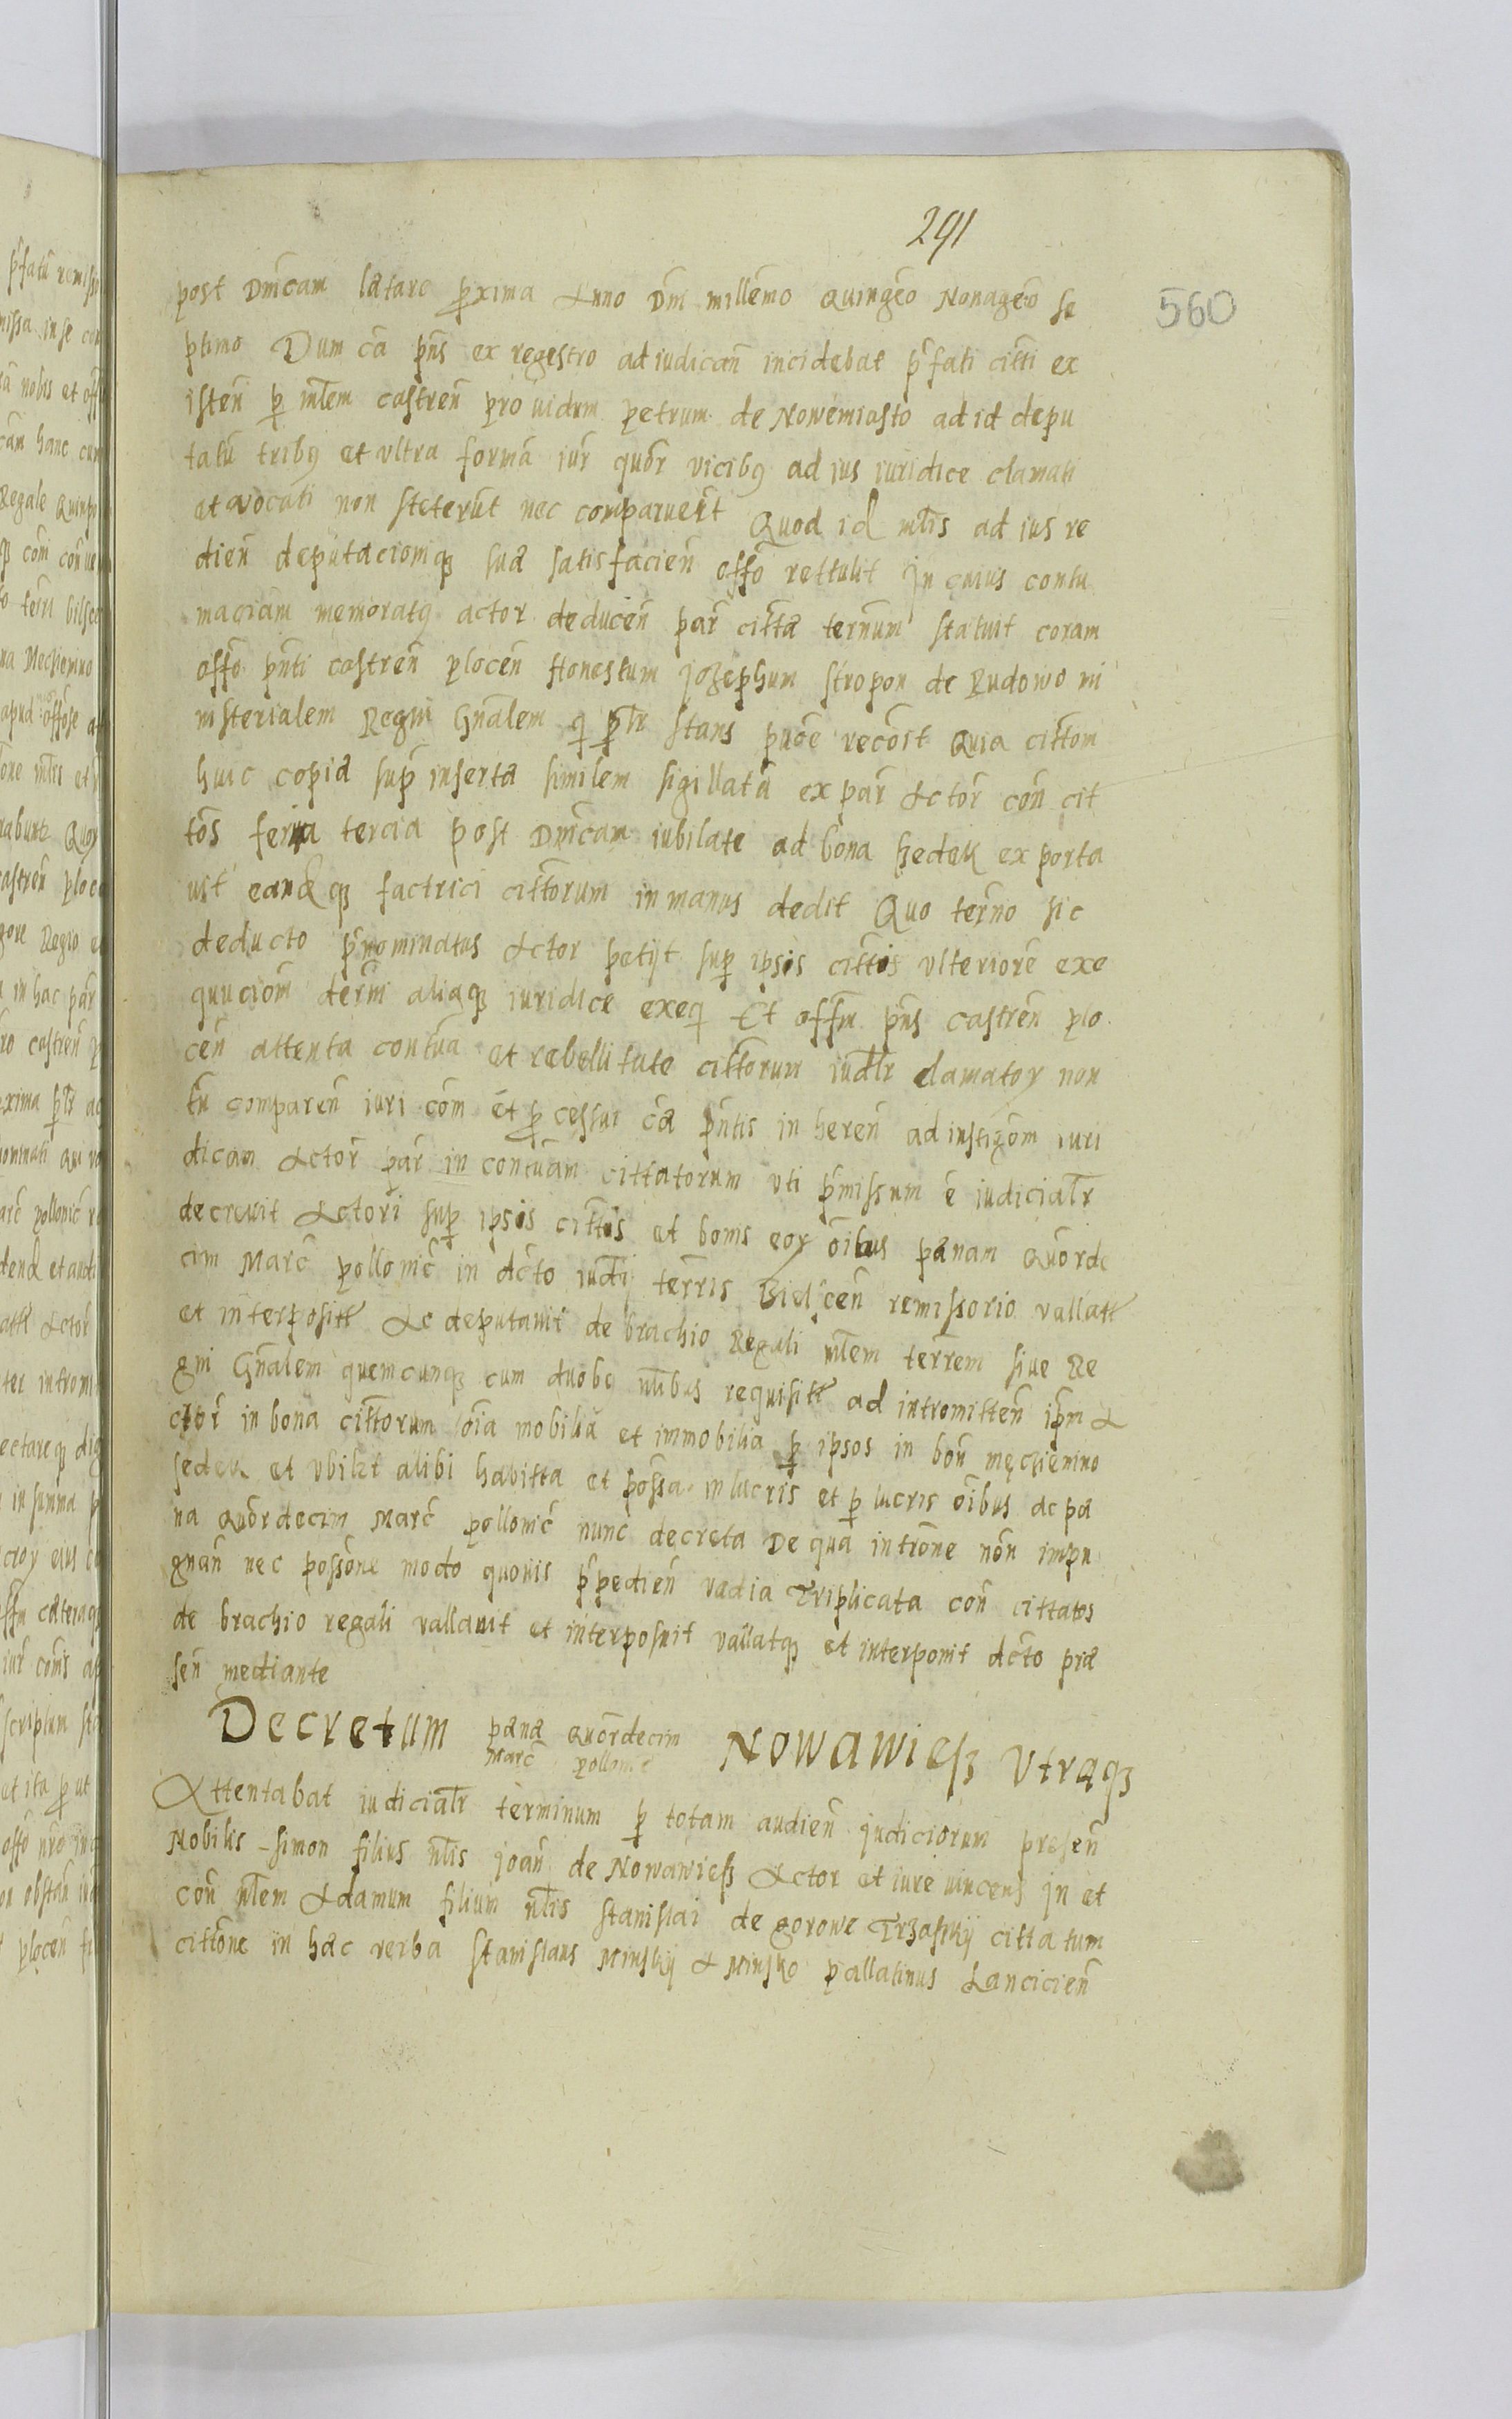 291
560
post Dnicam lætare pxima Anno Dni millemo Quingeo Nonageo se
ptimo Dum ca pns ex regestro ad iudican incidebat pfati citti ex
isten p mlem castren prouidum petrum de Nowemiasto ad id depu
tatu tribq et vltra forma iur quor vicibq ad ius iuridice clamati
et vocati non steterut nec comparuert Quod id mlis ad ius re
dien deputacioniq suæ satisfacien offo rettulit In cuius contu
maciam memoratq actor deducen par cittæ ternum statuit coram
offo pnti castren plocen Honestum Jozephum stropon de Rudowo mi
nisterialem Regni Gnalem q ptr stans pnce recoit Quia cittom
huic copiæ sup insertæ similem sigillata ex par Actor con cit
tos feria tercia post Dnicam iubilate ad bona sedek exporta
uit eandq factrici cittorum in manus dedit Quo terno sic
deducto pnominatus Actor petijt sup ipsis cittis vlteriore exe
quuciom dermi aliaq iuridice exeq Et offm pns castren plo
cen attenta contua et rebellitate cittorum iudlr clamatoy non
tn comparen iuri com et pcessui cæ pntis inheren ad instigom iuri
dican Actor par in contuam cittatorum vti pmissum e iudicialr
decreuit Actori sup ipsis cittis et bonis eoy oibus pænam Quorde
cim Marc pollonic in dcto iudij terris Bielscen remissorio vallatt
et interpositt Ac deputauit de brachio Regali mlem terrem siue Re
gni Gnalem quemcunq cum duobq nlibus requisitt ad intromitten ipm A
ctor in bona cittorum oia mobilia et immobilia p ipsos in bon męchienino
sedek et vbilzt alibi habitta et possa in lucris et p lucris oibus ac pæ
na Quordecim Marc pollonic nunc decreta De qua introne non impu
gnan nec possone modo quouis ppedien vadia Triplicata con cittatos
de brachio regali vallauit et interposuit vallatq et interponit dcto præ
sen mediante
Decretum pæna Quordecim Marc pollonic Nowawiesz Vtraqz
Attentabat iudicialr terminum p totam audien judiciorum presen
Nobilis simon filius nlis joan de Nowawiesz Actor et iure vincens in et
con nlem Adamum filium nlis stanislai de gorowe Trzaskij cittatum
cittone in hæc verba stanislaus Minskij A Minsko pallatinus Lancicien